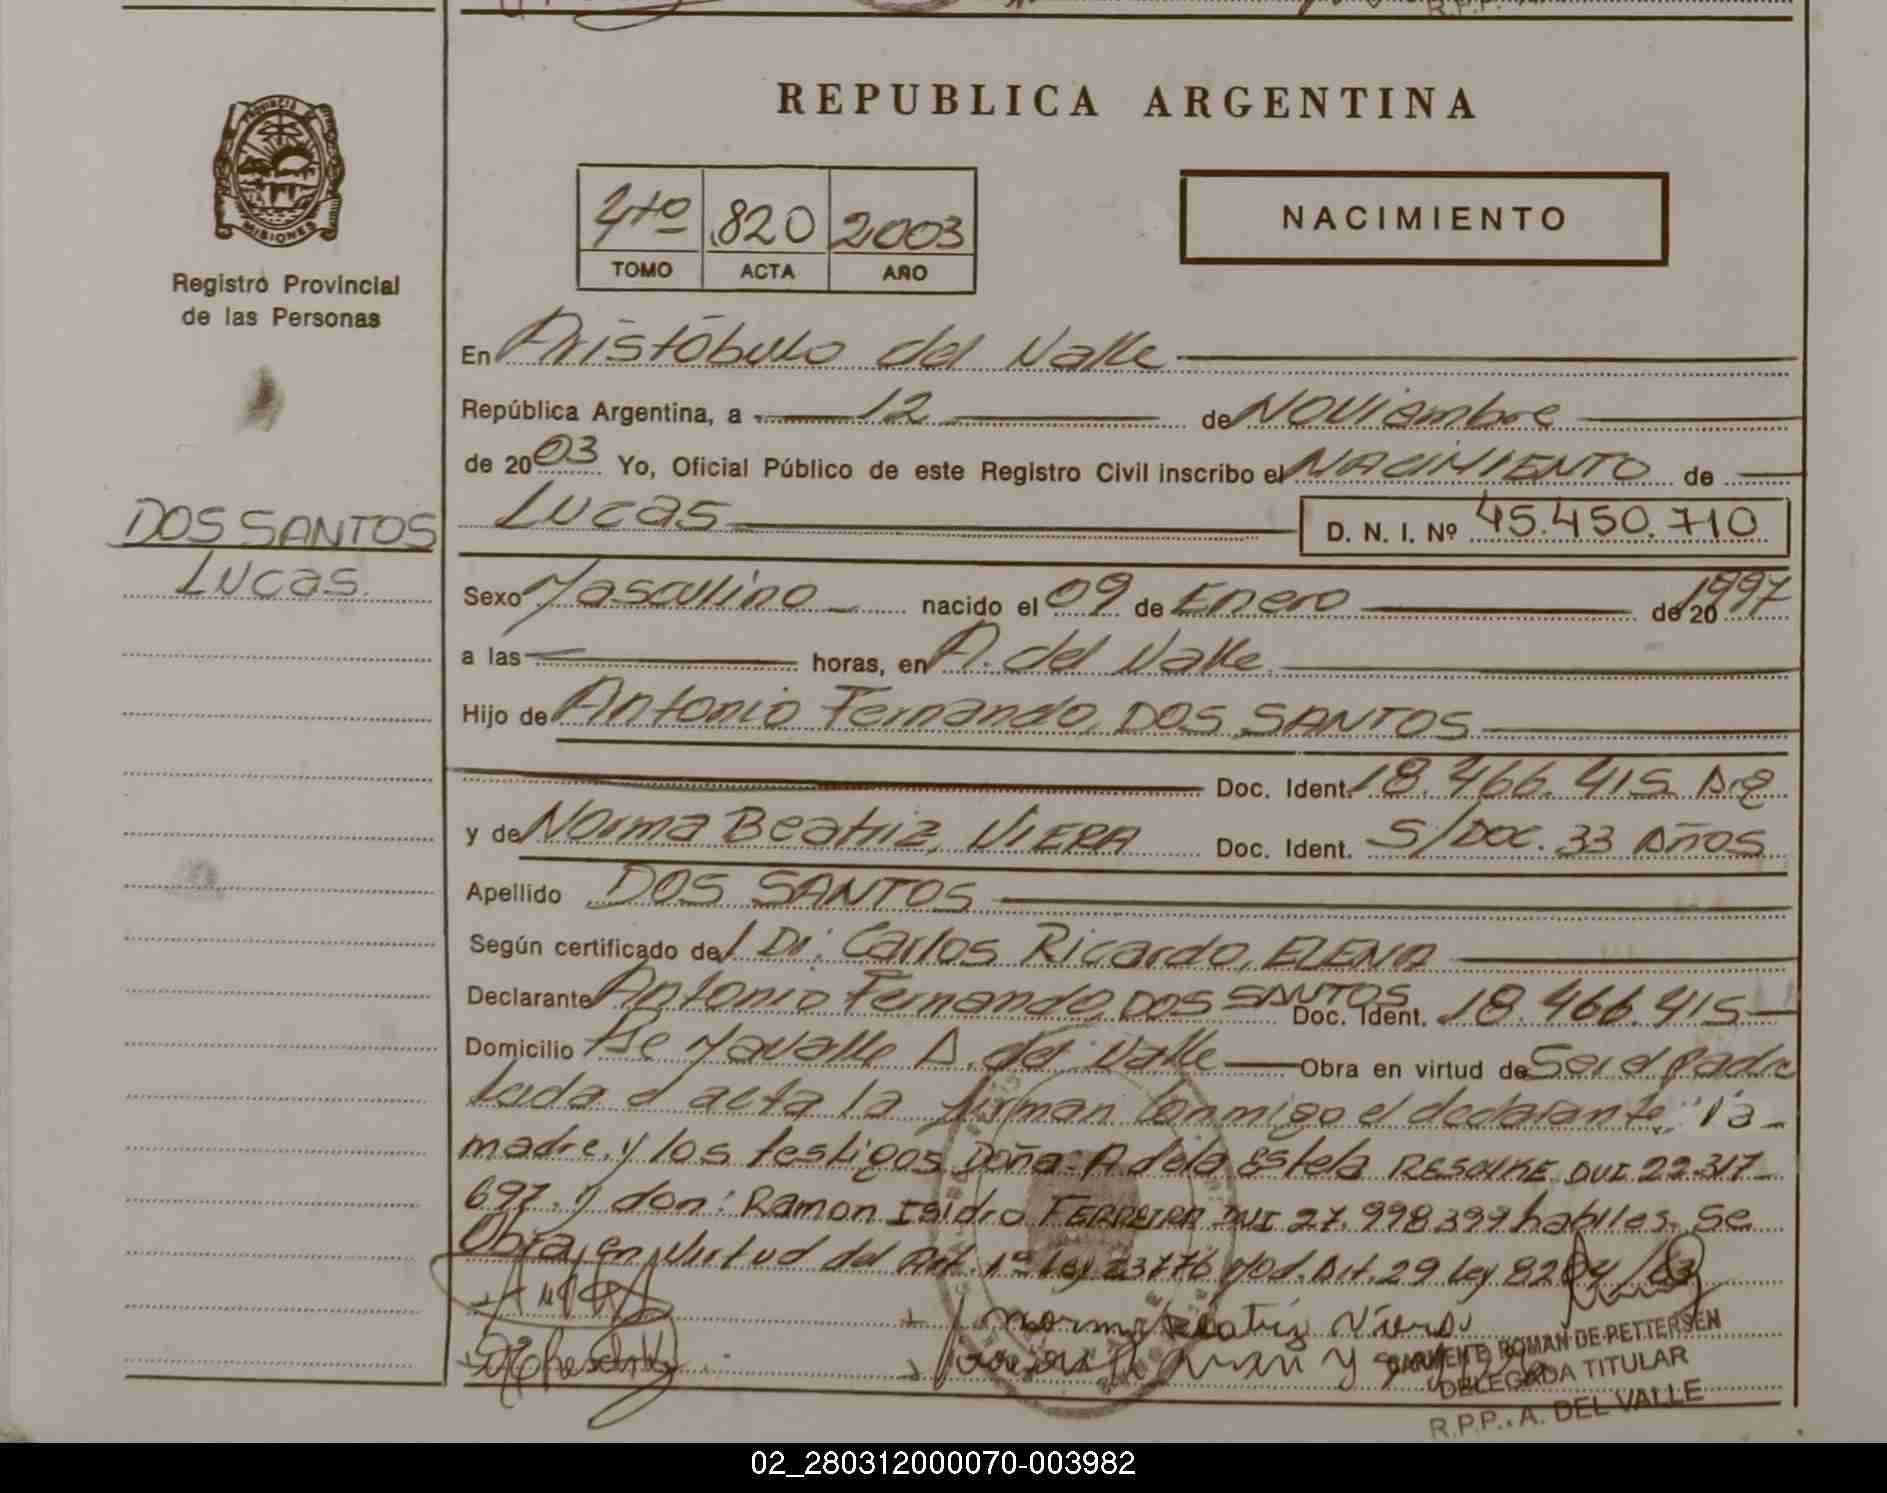 REPUBLICA ARGENTINA
PROVINCIA
MISIONES
Registro Provincial
de las Personas
4to 820 2003
TOMO ACTA AÑO
NACIMIENTO
En Aristóbulo del Valle
República Argentina, a 12 de Noviembre
de 2003 Yo, Oficial Público de este Registro Civil inscribo el NACIMIENTO de
DOS SANTOS
Lucas
Lucas D. N. I. Nº 45.450.710
Sexo Masculino nacido el 09 de Enero de 20 1997
a las horas, en A. del Valle
Hijo de Antonio Fernando, DOS SANTOS
Doc. Ident. 18.466.415 Arg
y de Norma Beatriz, VIERA Doc. Ident. S/Doc. 33 Años
Apellido DOS SANTOS
Según certificado del Dr: Carlos Ricardo, ELENA
Declarante Antonio Fernando, DOS SANTOS Doc. Ident. 18.466.415
Domicilio A. del Valle Obra en virtud de Ser el padre
leida el acta la firman conmigo el declarante, la
madre, y los testigos Doña: Adela Estela DNI 22.317
697. y don: Ramon Isidro FERREIRA DNI 27.998399 habiles. Se
Obra en virtud del Art. 1º Ley 23776 Mod. Art. 29 Ley 8204/63
norma Beatriz Viera
ROMAN DE PETTERSEN
DELEGADA TITULAR
R.P.P. A. DEL VALLE
02_280312000070-003982